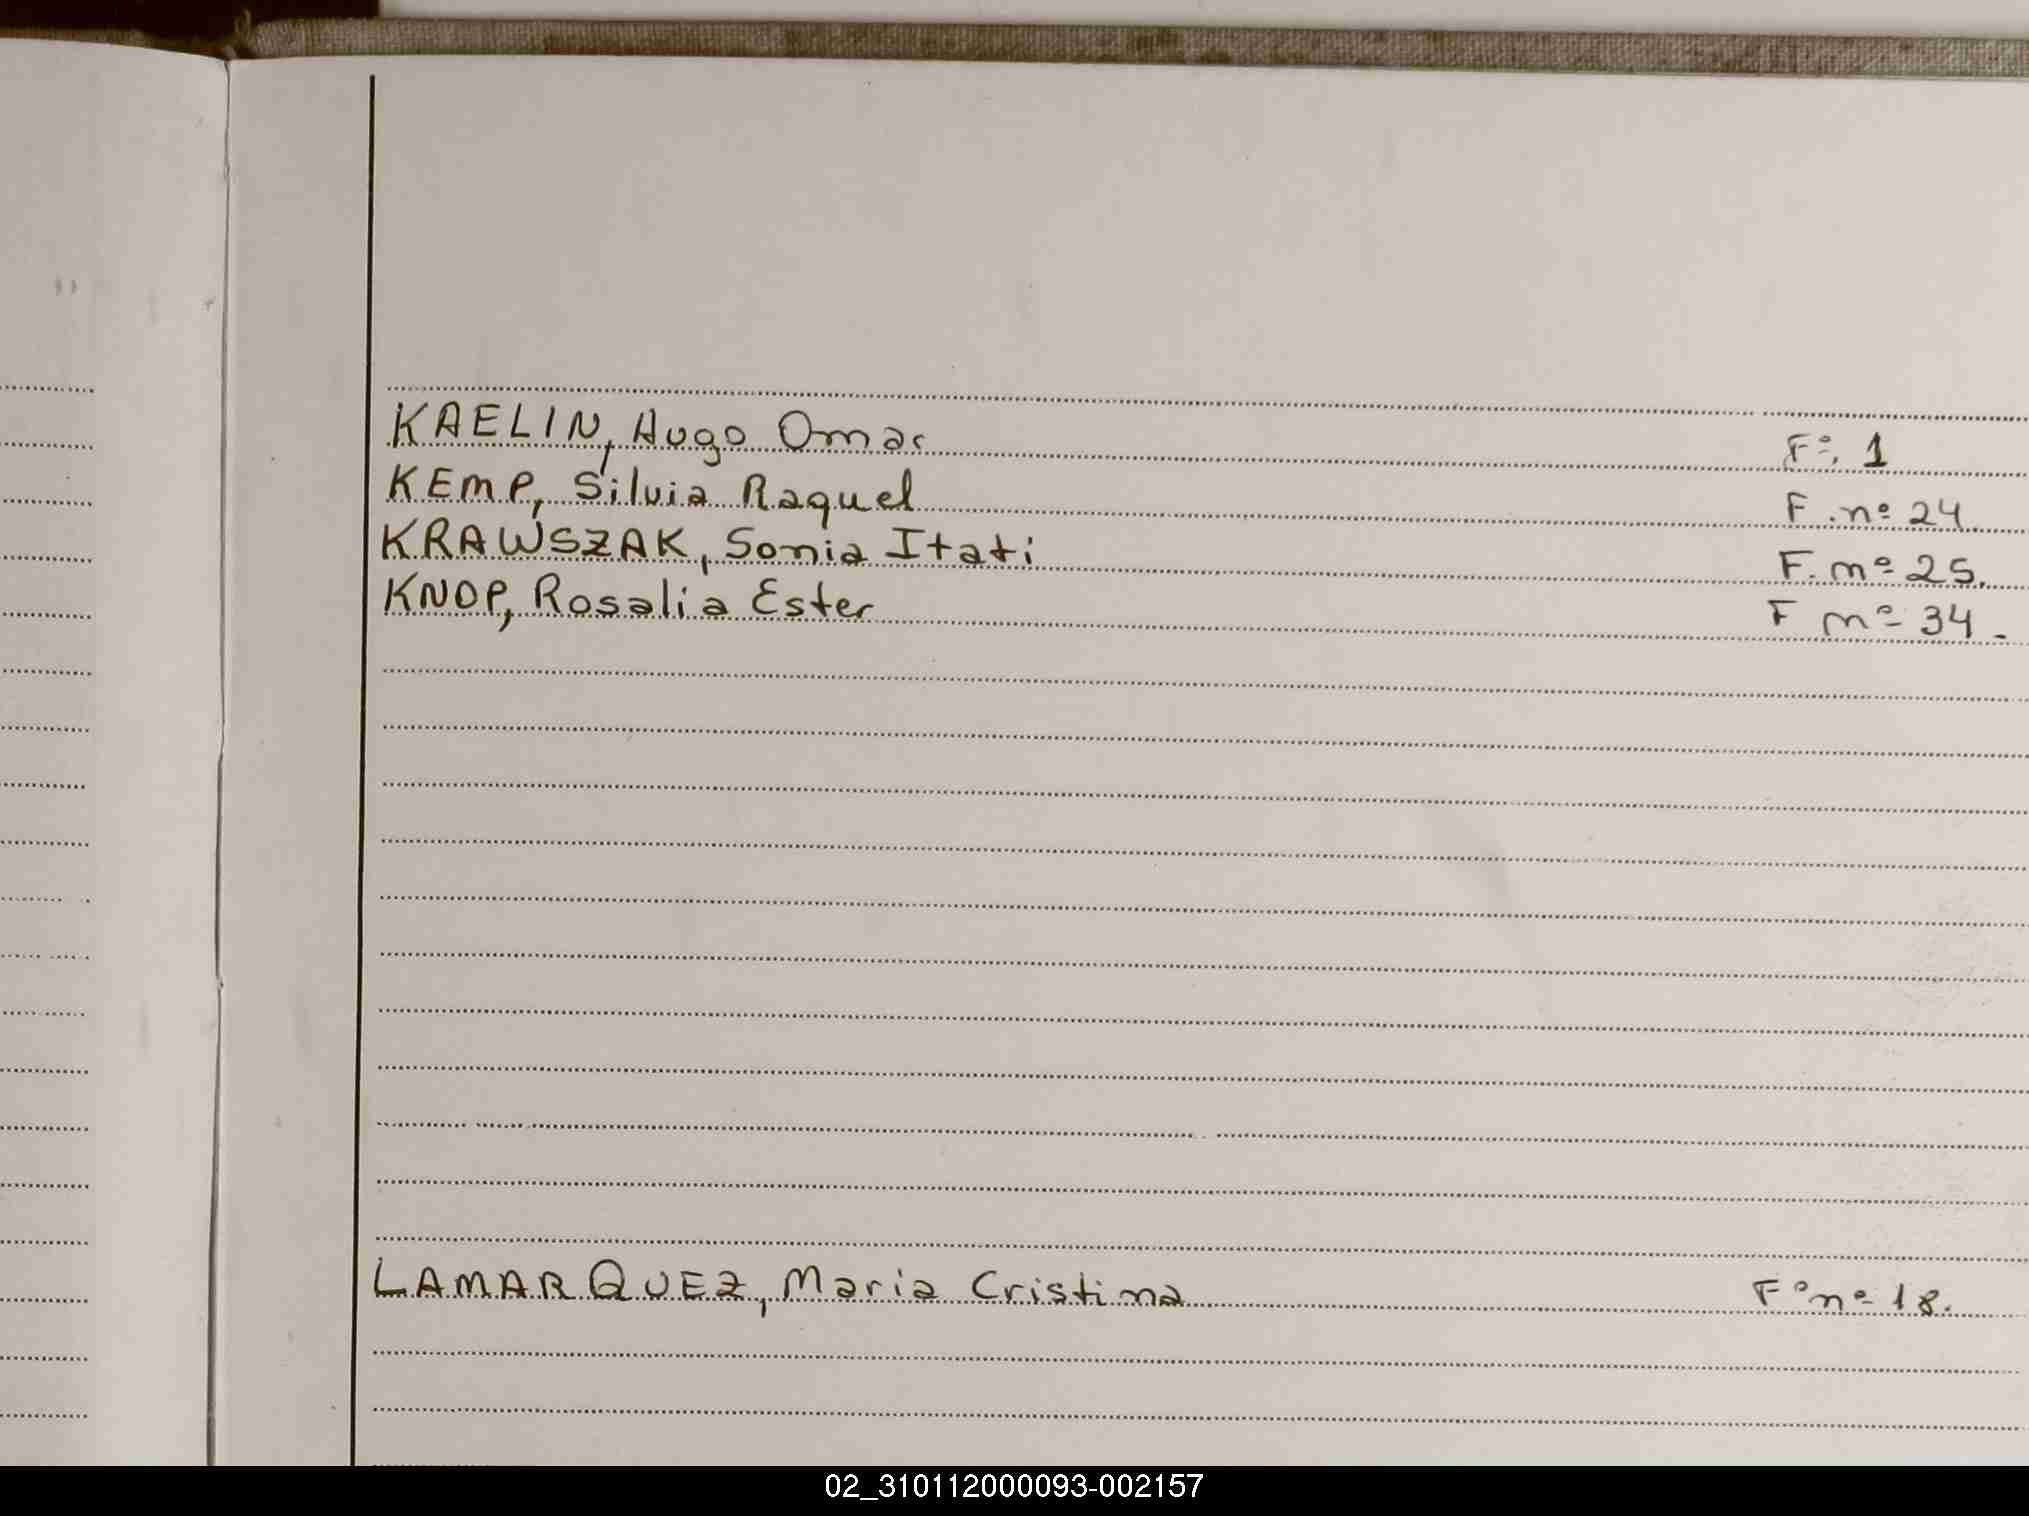 KAELIN, Hugo Omar F°. 1
KEMP, Silvia Raquel F. nº 24.
KRAWSZAK, Sonia Itati F. nº 25.
KNOP, Rosalia Ester F nº 34.
LAMARQUEZ, Maria Cristina F° nº 18.
02_310112000093-002157